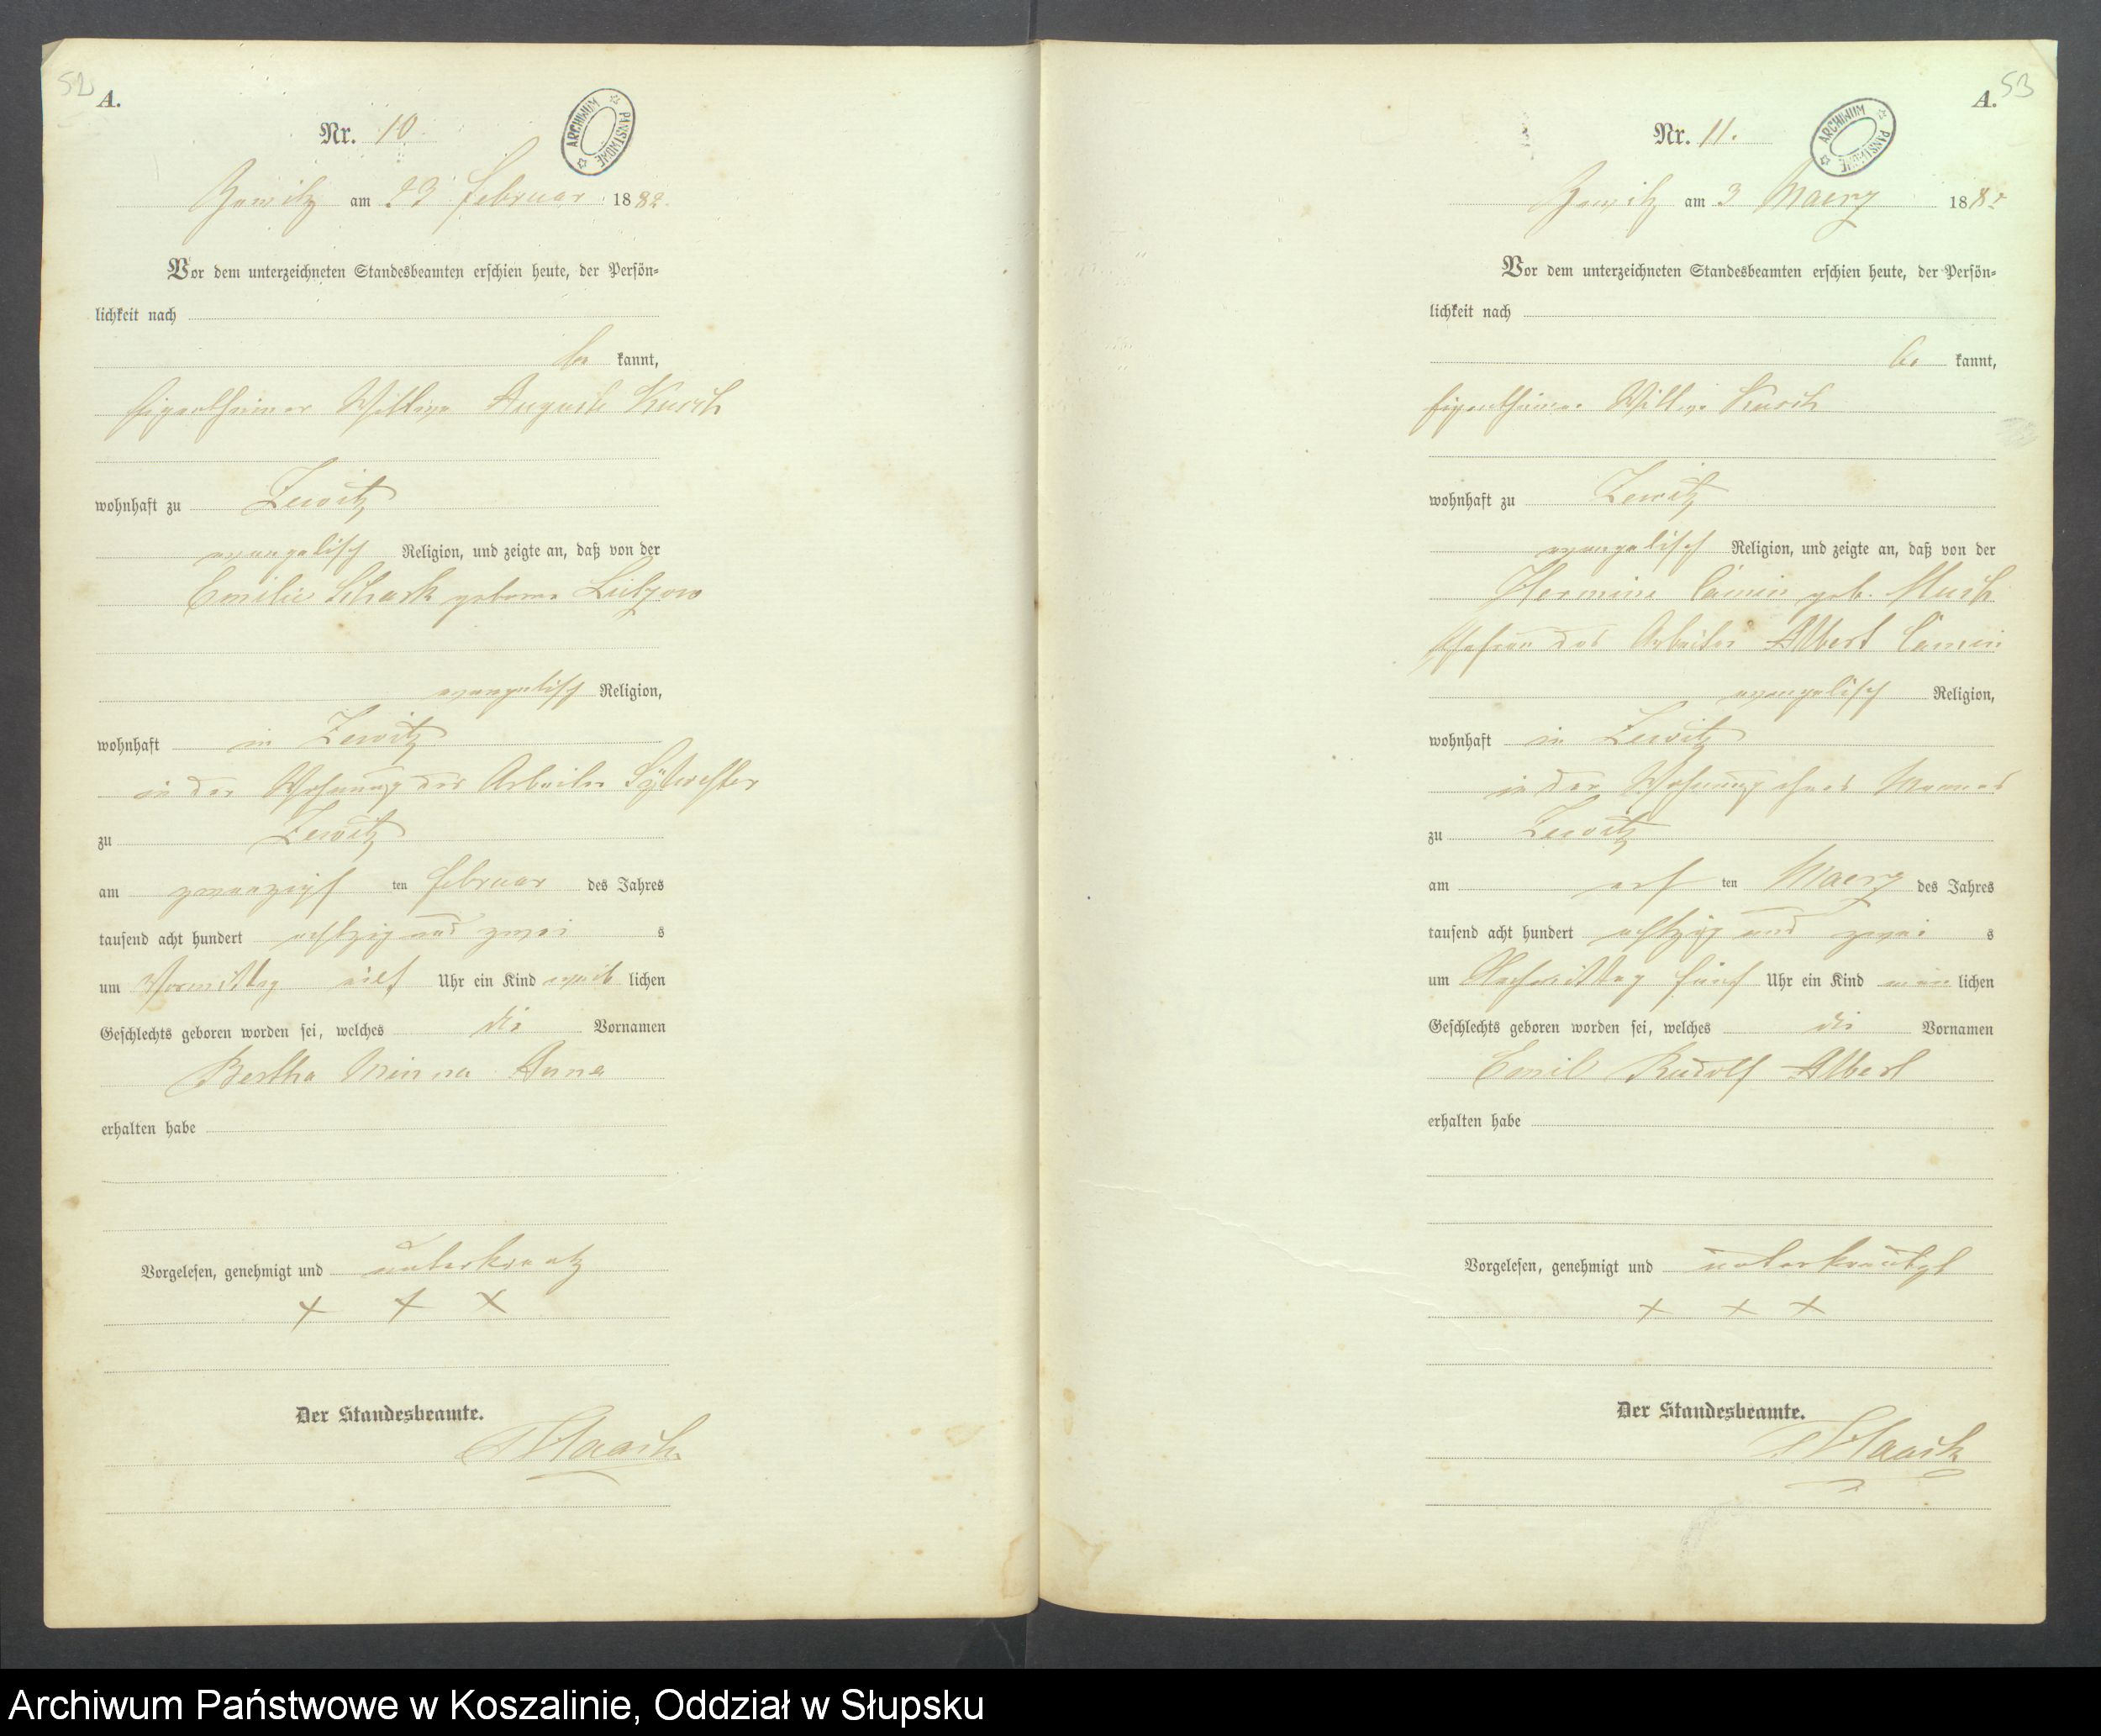 52
A.
Nr. 10.
ARCHIWUM PAŃSTWOWE
Zewitz am 23 Februar 1882.
Vor dem unterzeichneten Standesbeamten erschien heute, der Persön-
lichkeit nach
be kannt,
Eigenthümer Wittwe Auguste Kusch
wohnhaft zu Zewitz
evangelisch Religion, und zeigte an, daß von der
Emilie Schark geborne Lützow
evangelisch Religion,
wohnhaft in Zewitz
in der Wohnung des Arbeiter Sylwester
zu Zewitz
am zwanzigs ten Februar des Jahres
tausend acht hundert achtzig und zwei s
um Vormittag elf Uhr ein Kind weib lichen
Geschlechts geboren worden sei, welches die Vornamen
Bertha Minna Anna
erhalten habe
Vorgelesen, genehmigt und unterkreutz
+ + +
Der Standesbeamte.
Haack
53
A.
Nr. 11.
ARCHIWUM PAŃSTWOWE
Zewitz am 3 Maerz 1882
Vor dem unterzeichneten Standesbeamten erschien heute, der Persön-
lichkeit nach
be kannt,
Eigenthümer Wittwe Kusch
wohnhaft zu Zewitz
evangelisch Religion, und zeigte an, daß von der
Hermine Camin geb.
Ehefrau des Arbeiter Albert Camin
evangelisch Religion,
wohnhaft in Zewitz
in der Wohnung ihres Mannes
zu Zewitz
am ers ten Maerz des Jahres
tausend acht hundert achtzig und zwei s
um Nachmittag fünf Uhr ein Kind män lichen
Geschlechts geboren worden sei, welches die Vornamen
Emil Rudolf Albert
erhalten habe
Vorgelesen, genehmigt und unterkreutzt
+ + +
Der Standesbeamte.
Haack
Archiwum Państwowe w Koszalinie, Oddział w Słupsku